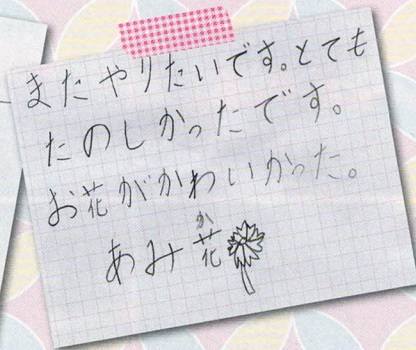 またやりたいです。とても
たのしかったです。
お花がかわいかった。
か
あみ花